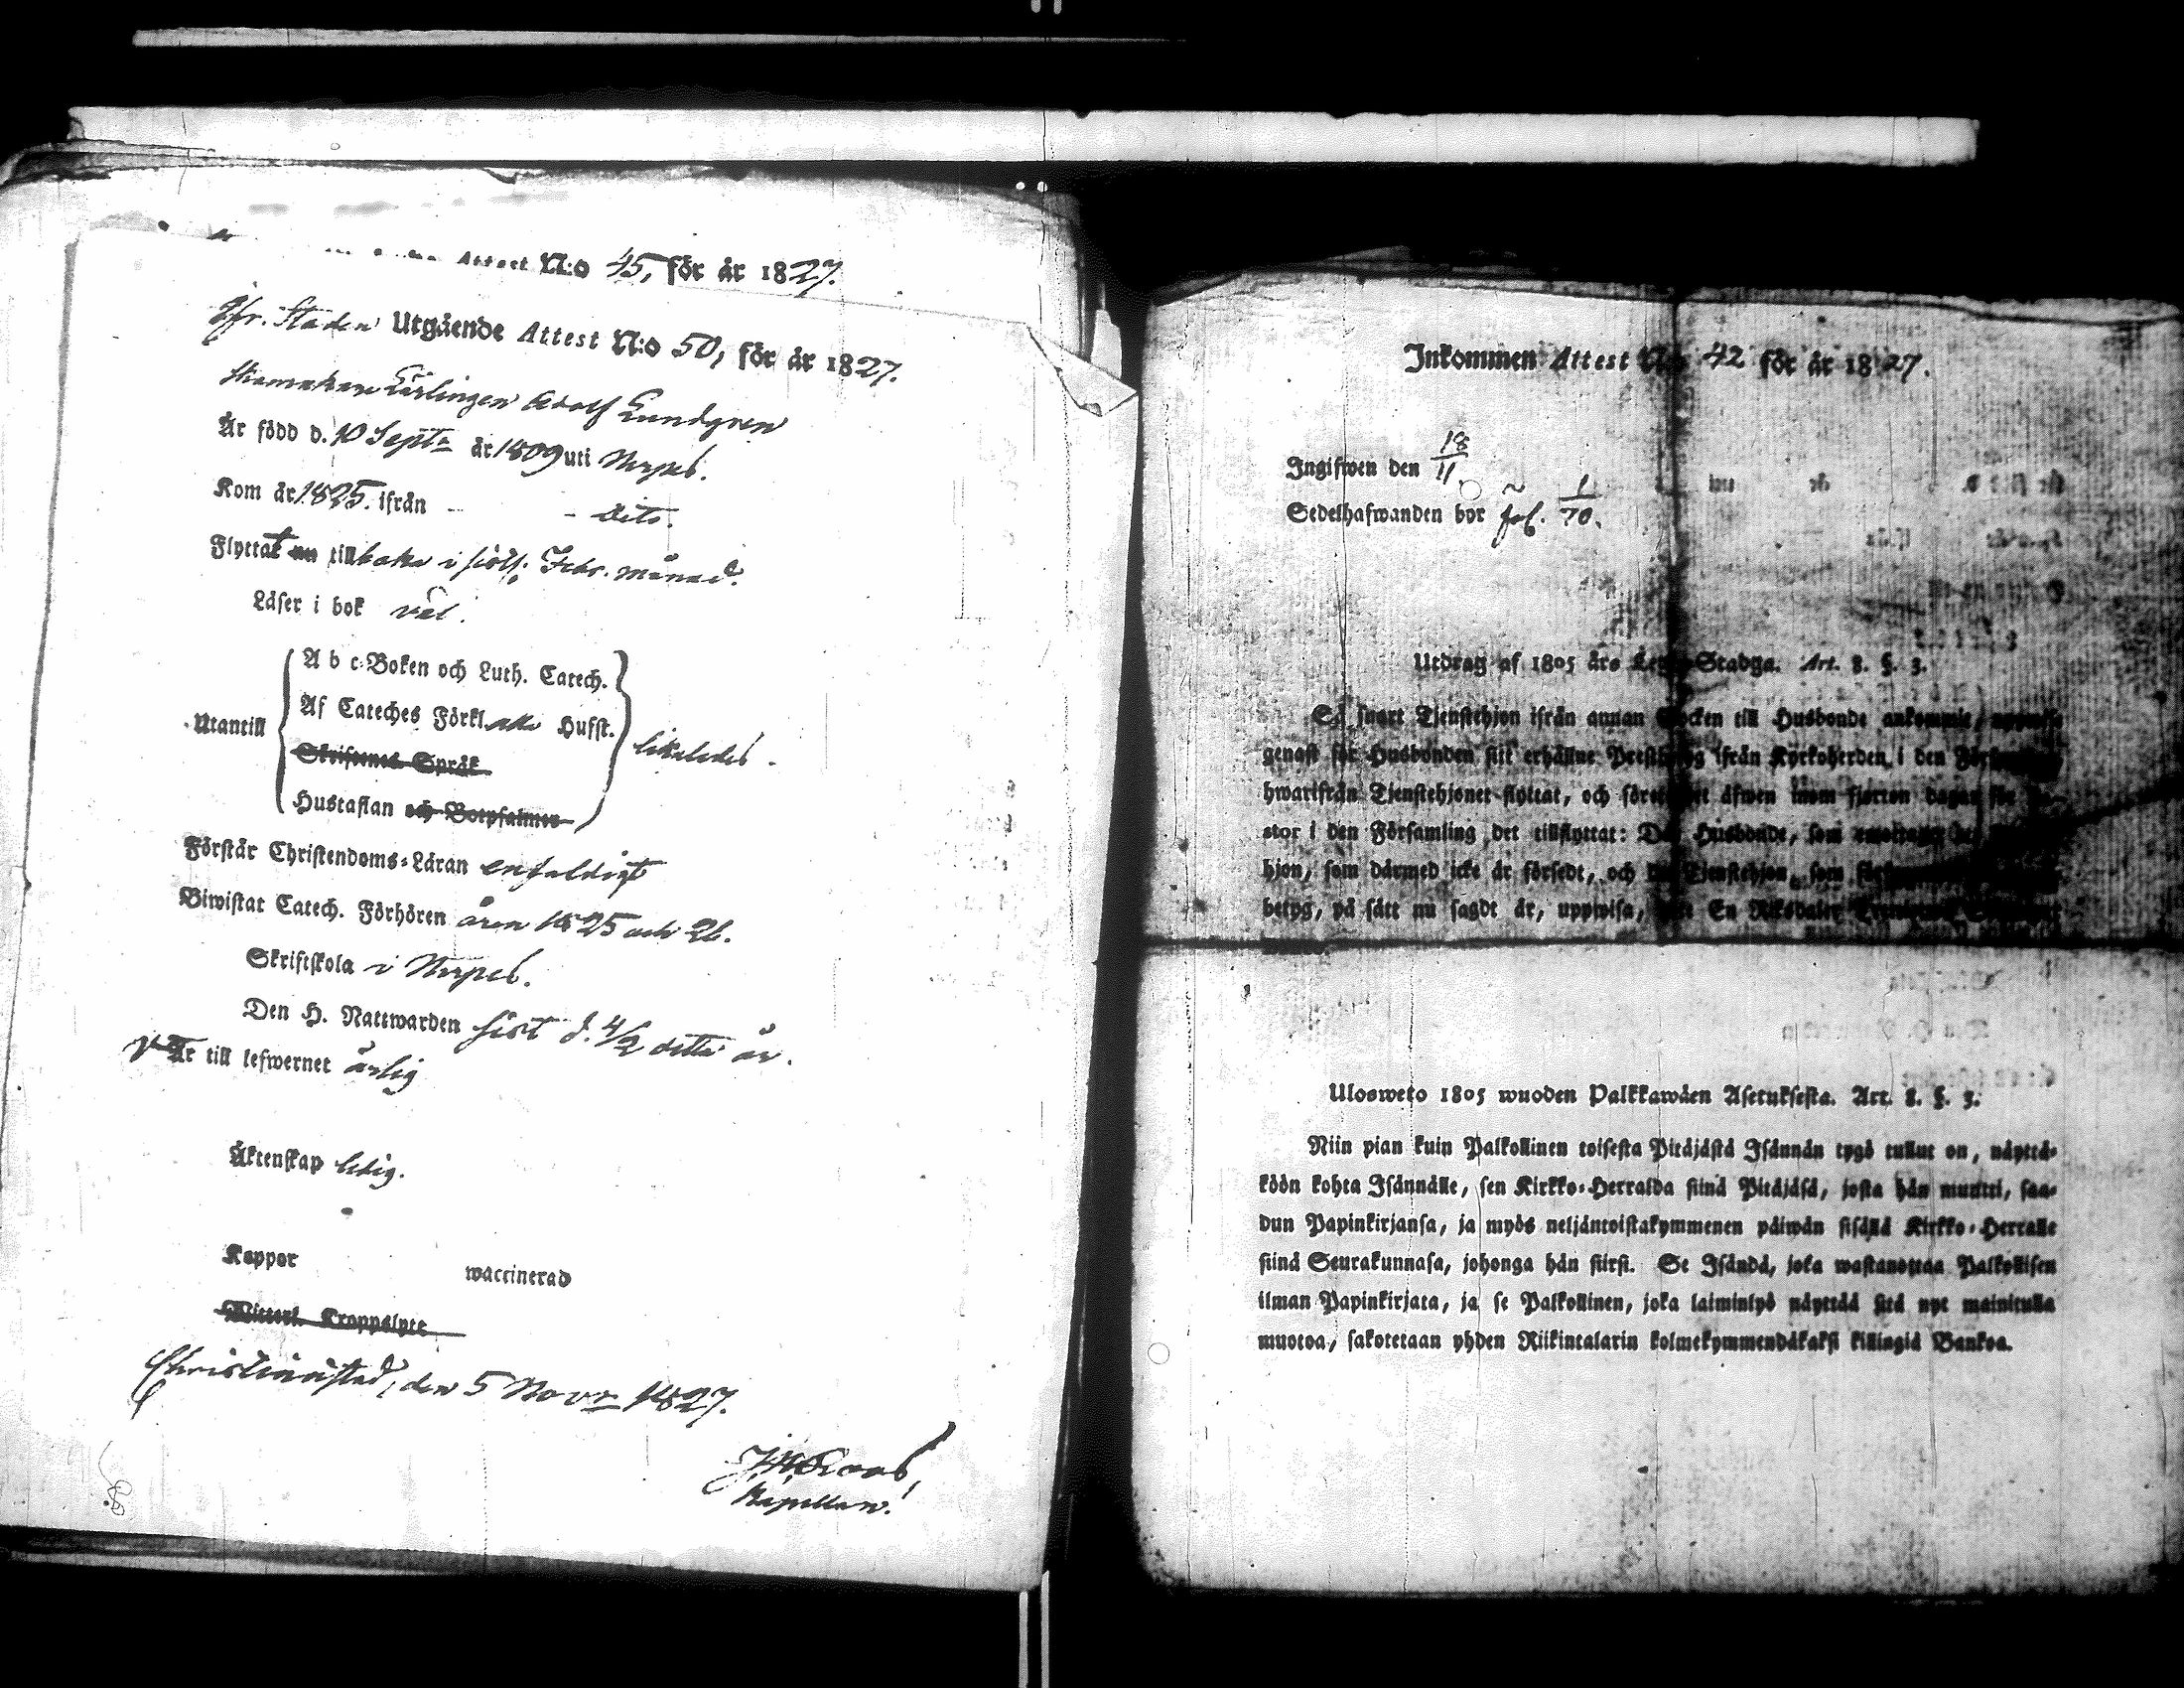 Attest N:o 45, för år 1827.
fr. Staden Utgående Attest N:o 50, för år 1827.
Skomakare Lärlingen Adolf Lundgren
Är född d. 10 Sept. år 1809 uti Nerpes.
Kom år 1825. ifrån - - dito.
Flyttat nu tillbaka i sistl. Febr. månad.
Läser i bok väl.
Utantill
A b c-Boken och Luth. Catech.
Af Cateches Förkl. Husft.
Skriftenes Språk
Hustaflan och Botpsalmen
likaledes.
Förstår Christendoms-Läran enfaldigt
Biwistat Catech. Förhören åren 1825 och 26.
Skriftskola i Nerpes.
Den H. Nattwarden sist d. 4/2 detta år.
Är till lefwernet ärlig
Äktenskap ledig.
Koppor waccinerad
Witterl. Kroppslyte
Christinæstad, den 5 Novr 1827.
Kapellan.
Inkommen Attest N:o 42 för år 1827.
Ingifwen den 18/11.
Sedelhafwanden bor fol. 1/70.
Utdrag af 1805 års Stadga. Art. 8. §. 3.
Så snart Tjenstehjon ifrån annan Socken till Husbonde ankommit, uppwise
genast för Husbonden sitt erhållne ifrån Kyrkoherden i den
hwarifrån Tjenstehjonet flyttat, och äfwen inom fjorton dagar för
stor i den Församling det tillflyttat: Den Husbonde, som
hjon, som därmed icke är försedt, och Tjenstehjon, som
betyg, på sätt nu sagdt är, uppwisa, En Riksdaler
Ulosweto 1805 wuoden Palkkawäen Asetuksesta. Art. 8. §. 3.
Niin pian kuin Palkollinen toisesta Pitäjästä Isännän tygö tullut on, näyttä-
köön kohta Isännälle, sen Kirkko-Herralda siinä Pitäjäsä, josta hän muutti, saa-
dun Papinkirjansa, ja myös neljäntoistakymmenen päiwän sisällä Kirkko-Herralle
siinä Seurakunnasa, johonga hän siirsi. Se Isändä, joka wastanottaa Palkollisen
ilman Papinkirjata, ja se Palkollinen, joka laiminlyö näyttää sitä nyt mainitulla
muotoa, sakotetaan yhden Riikintalarin kolmekymmendäkaksi killingiä Bankoa.